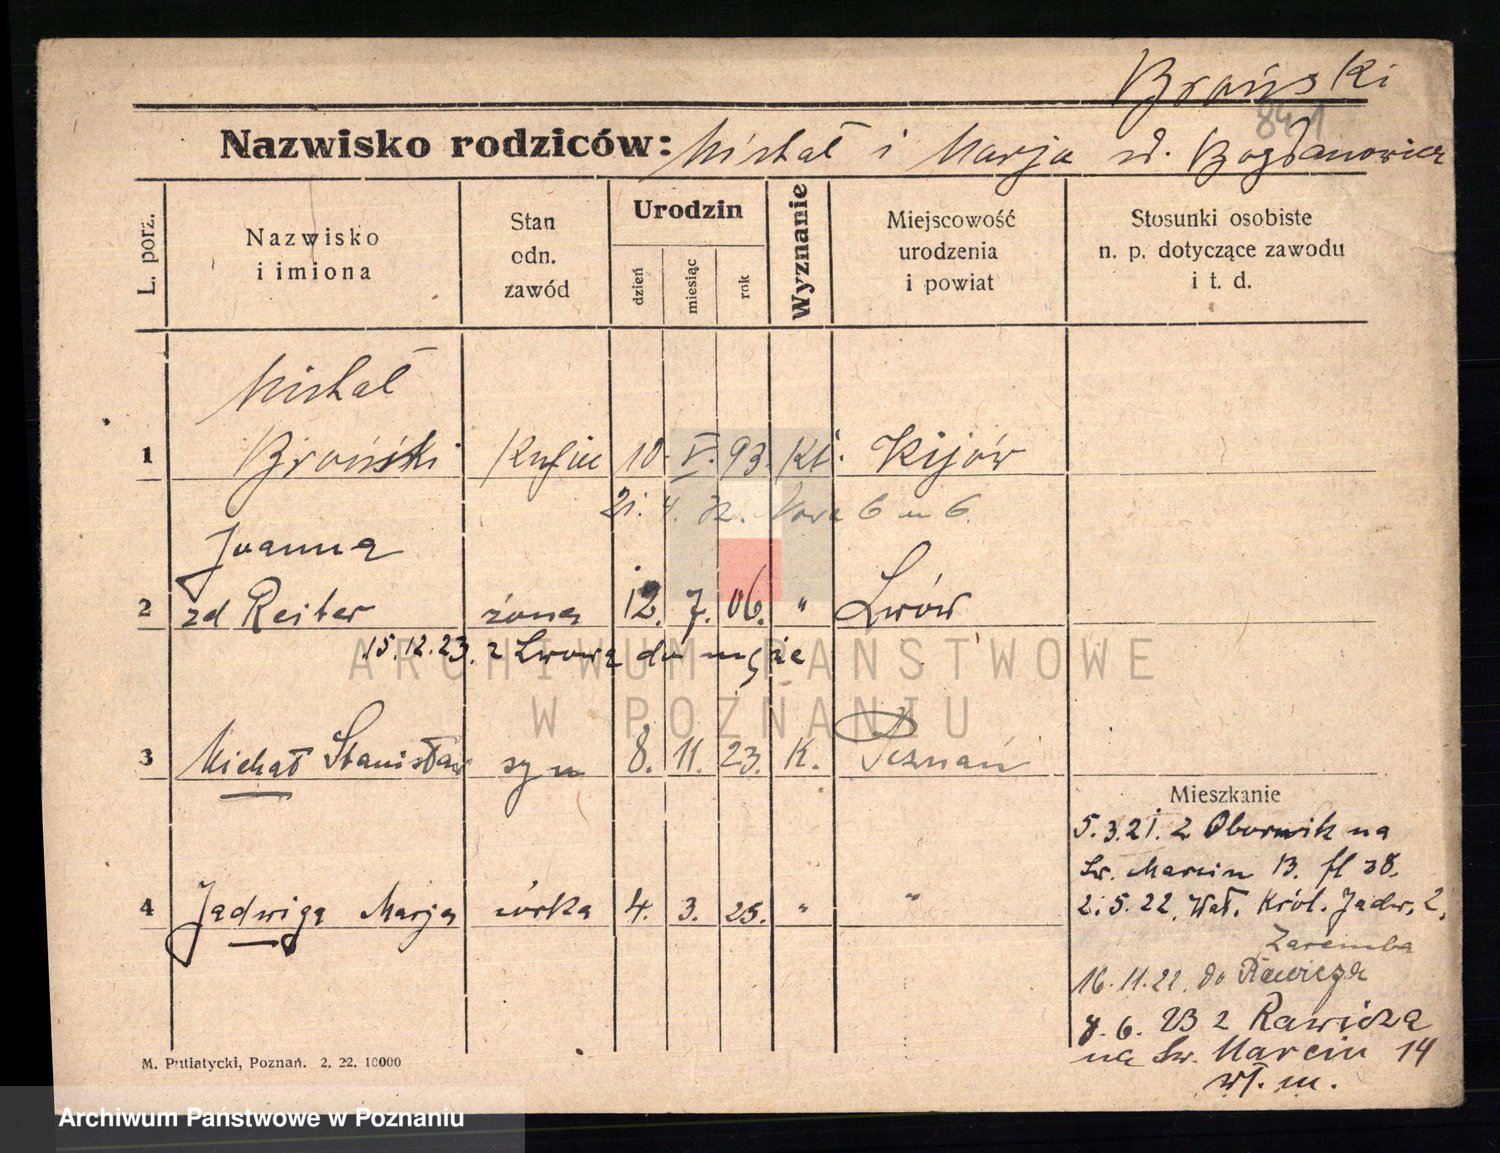 Broński
841
Nazwisko rodziców: Michał i Marja zd. Bogdanowicz
L. porz.
Nazwisko
i imiona
Stan
odn.
zawód
Urodzin
dzień
miesiąc
rok
Wyznanie
Miejscowość
urodzenia
i powiat
Stosunki osobiste
n. p. dotyczące zawodu
i t. d.
Michał
1 Broński Kupiec 10. V. 93. Kt. Kijów
21. 4. 32. Nowa 6 m 6
Joanna
2 zd Reiter żona 12. 7. 06. " Lwów
15.12.23. z Lwowa do męża
3 Michał Stanisław syn 8. 11. 23. K. Poznań
Mieszkanie
5.3.21. z Obornik na
Św. Marcin 13. fl 38.
4 Jadwiga Marja córka 4. 3. 25. " "
2.5.22. Wał. Król. Jadw. 2,
Zaremba
16.11.22. do Rawicza
8.6. 23 z Rawicza
na Św. Marcin 14
wł. m.
M. Putiatycki, Poznań. 2. 22. 10000
ARCHIWUM PAŃSTWOWE
W POZNANIU
Archiwum Państwowe w Poznaniu